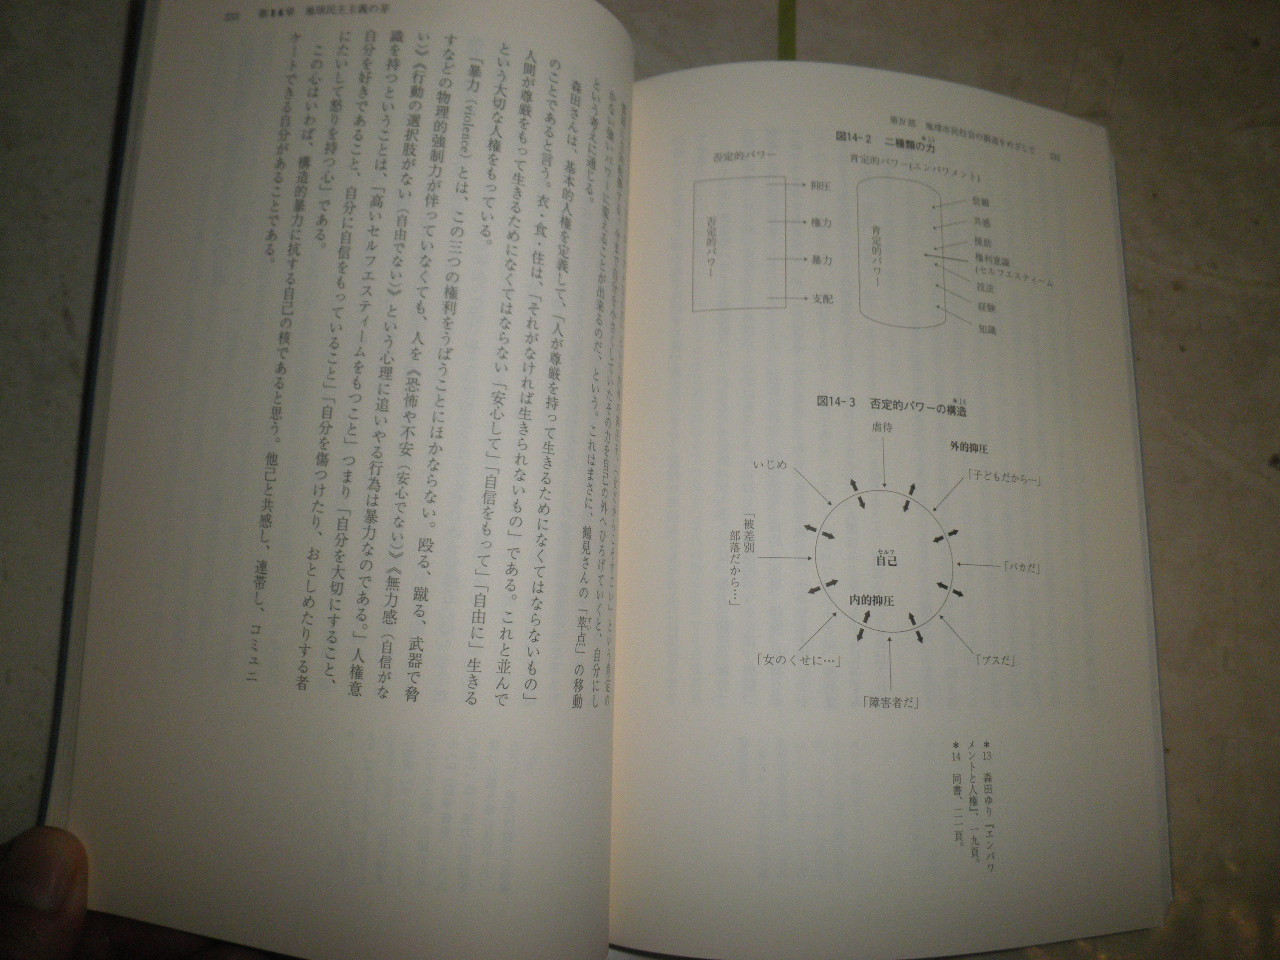 第Ⅳ部　地球市民社会の創造をめざして
図14-2　二種類の力 *13
否定的パワー
否定的パワー
抑圧
権力
暴力
支配
肯定的パワー(エンパワメント)
肯定的パワー
信頼
共感
援助
権利意識
(セルフエスティーム
技法
経験
知識
図14-3　否定的パワーの構造 *14
外的抑圧
虐待
いじめ
「子どもだから…」
「被差別
部落だから…」
セルフ
自己
「バカだ」
内的抑圧
「女のくせに…」
「ブスだ」
「障害者だ」
*13　森田ゆり『エンパワ
メントと人権』、一九頁。
*14　同書、二一頁。
第14章　地球民主主義の芽
かない強いパワーに変えることが出来るのだ、という。これはまさに、鶴見さんの「萃点」の移動
という考えに通じる。
森田さんは、基本的人権を定義して、「人が尊厳を持って生きるためになくてはならないもの」
のことであると言う。衣・食・住は、「それがなければ生きられないもの」である。これと並んで
人間が尊厳をもって生きるためになくてはならない「安心して」「自信をもって」「自由に」生きる
という大切な人権をもっている。
「暴力（violence）とは、この三つの権利をうばうことにほかならない。殴る、蹴る、武器で脅
すなどの物理的強制力が伴っていなくても、人を《恐怖や不安（安心でない）》《無力感（自信がな
い）》《行動の選択肢がない（自由でない）》という心理に追いやる行為は暴力なのである。」人権意
識を持つということは、「高いセルフエスティームをもつこと」つまり「自分を大切にすること、
自分を好きであること、自分に自信をもっていること」「自分を傷つけたり、おとしめたりする者
にたいして怒りを持つ心」である。
この心はいわば、構造的暴力に抗する自己の核であると思う。他己と共感し、連帯し、コミュニ
ケートできる自分があることである。